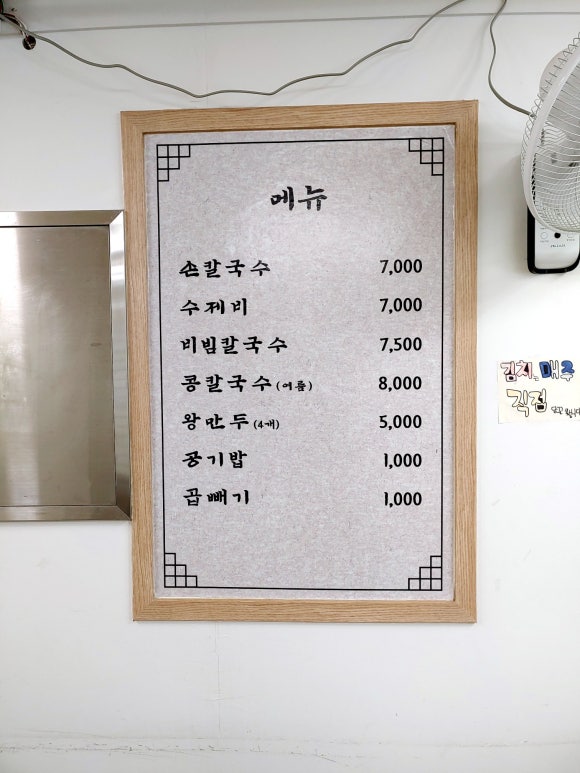 메뉴
손칼국수 7,000
수제비 7,000
비빔칼국수 7,500
콩칼국수(여름) 8,000
왕만두(4개) 5,000
공기밥 1,000
곱빼기 1,000
김치, 매주
직접